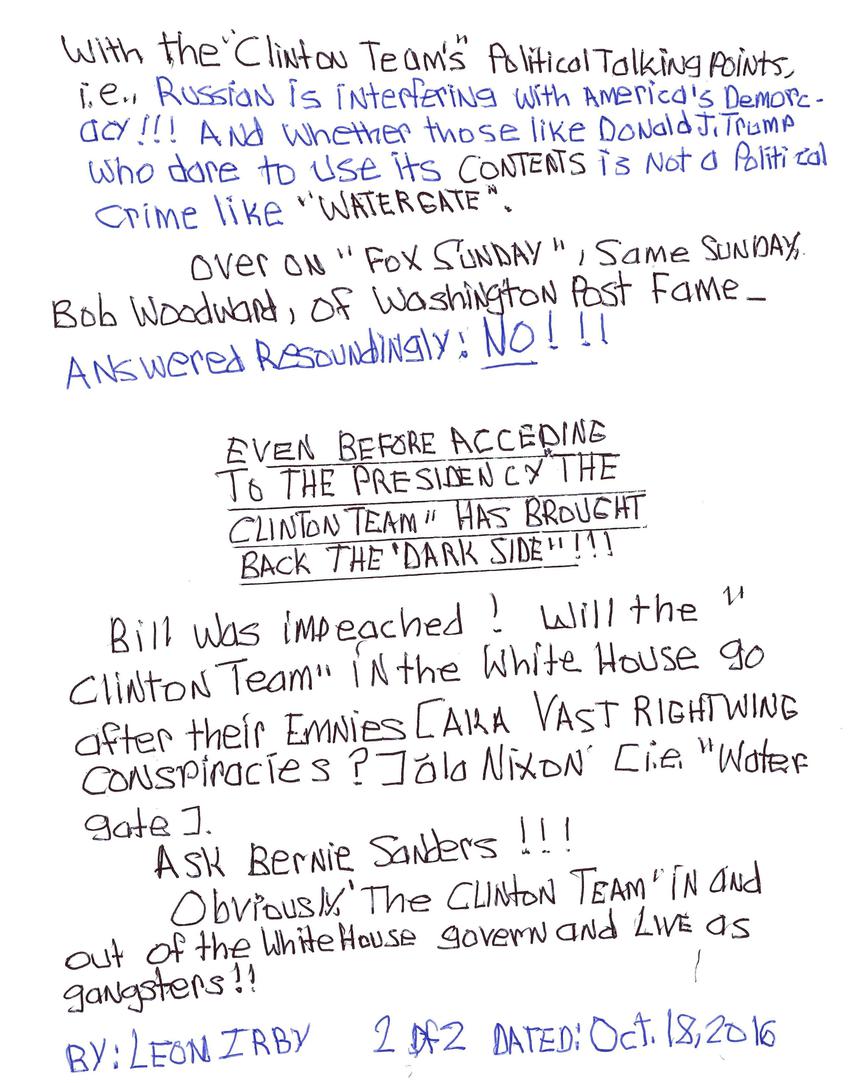 With the "Clinton Team's" Political Talking Points,
i.e., Russian is interfering with America's Democr-
acy!!! And whether those like Donald J. Trump
who dare to use its CONTENTS is Not a Political
Crime like "WATERGATE".
Over on "Fox SUNDAY", Same SUNDAY,
Bob Woodward, of Washington Post Fame_
ANSWERED Resoundingly: NO!!!
EVEN BEFORE ACCEDING
TO THE PRESIDENCY "THE
CLINTON TEAM" HAS BROUGHT
BACK THE "DARK SIDE"!!!
Bill was impeached! Will the "
Clinton Team" in the White House go
after their Emnies [AKA VAST RIGHTWING
CONSPIRACIES?] ala Nixon [i.e. "Water
gate].
Ask Bernie Sanders!!!
Obviously "The CLINTON TEAM" in and
out of the White House govern and Live as
gangsters!!
BY: LEON IRBY 2 OF 2 DATED: Oct. 18, 2016